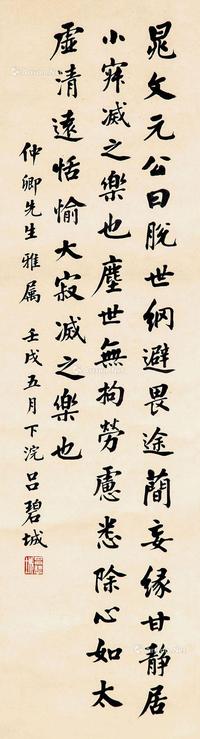 晁文元公曰脫世網避畏途簡妄緣甘靜居
小寂滅之樂也塵世無拘勞慮悉除心如太
虛清遠恬愉大寂滅之樂也
仲卿先生雅属 壬戌五月下浣 吕碧城